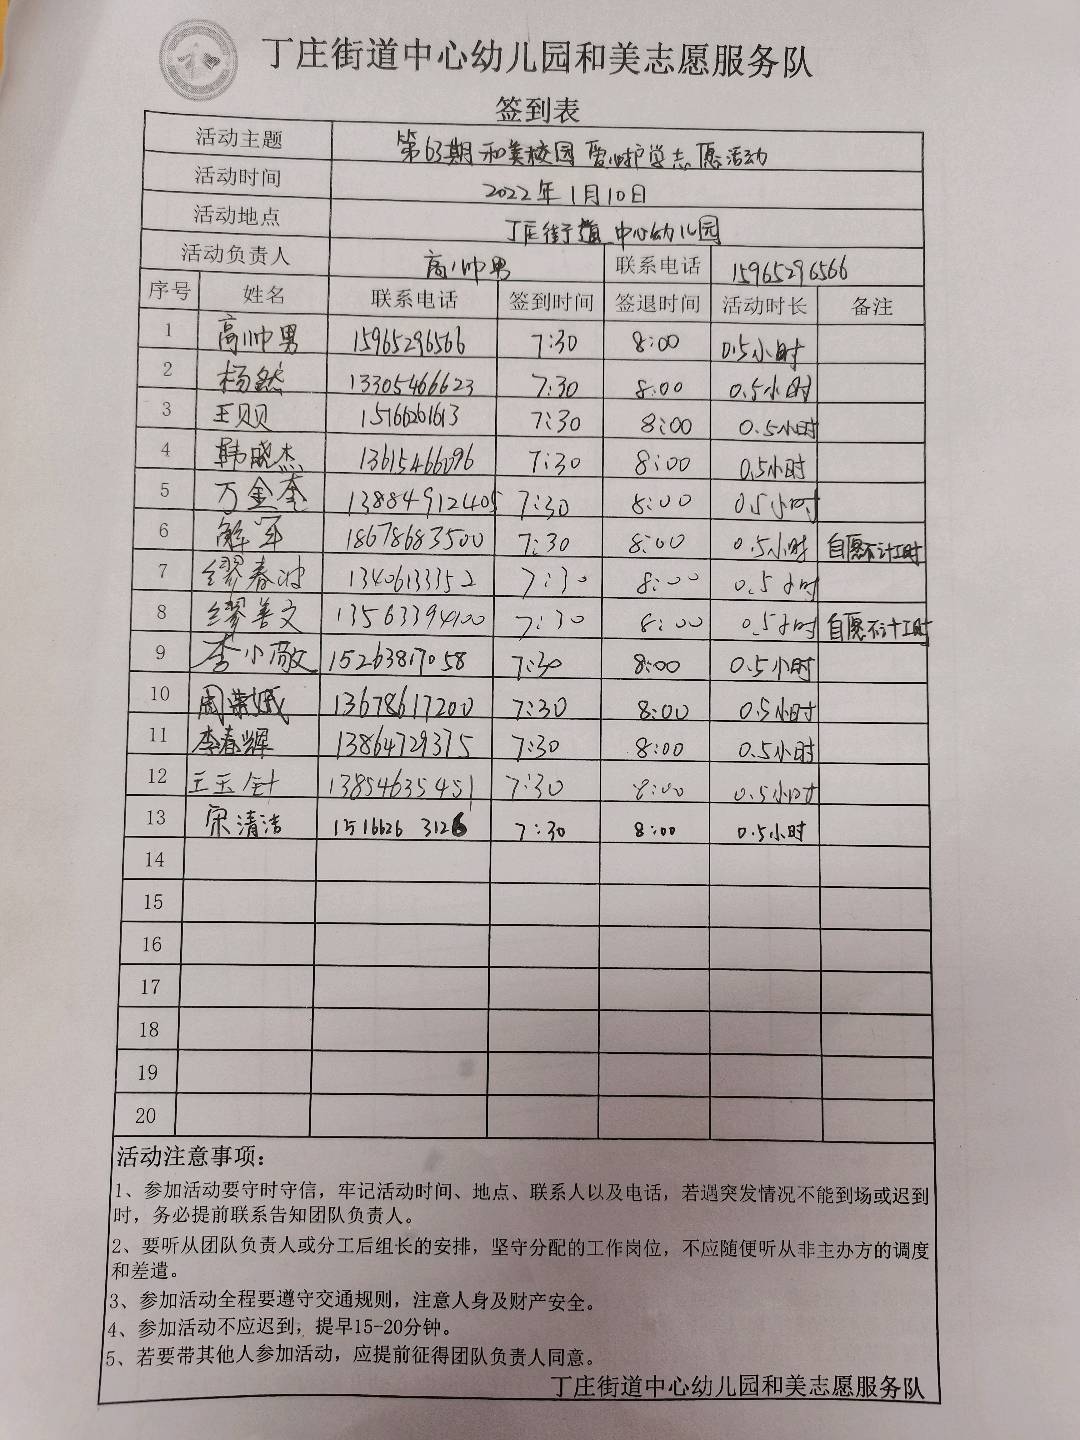 丁庄街道中心幼儿园和美志愿服务队
签到表
活动主题 第63期和美校园爱心护学志愿活动
活动时间 2022年1月10日
活动地点 丁庄街道中心幼儿园
活动负责人 高帅男 联系电话 15965296566
序号 姓名 联系电话 签到时间 签退时间 活动时长 备注
1 高帅男 15965296566 7:30 8:00 0.5小时
2 杨然 13305466623 7:30 8:00 0.5小时
3 王贝贝 15166261613 7:30 8:00 0.5小时
4 韩晓杰 13615466096 7:30 8:00 0.5小时
5 万金奎 13884912405 7:30 8:00 0.5小时
6 解军 18678683500 7:30 8:00 0.5小时 自愿不计工时
7 缪春波 13406133352 7:30 8:00 0.5小时
8 缪善文 13563394100 7:30 8:00 0.5小时 自愿不计工时
9 李小敬 15263817058 7:30 8:00 0.5小时
10 周 13678617200 7:30 8:00 0.5小时
11 李春辉 13864729375 7:30 8:00 0.5小时
12 王玉针 13854635451 7:30 8:00 0.5小时
13 宋清洁 1516626 3126 7:30 8:00 0.5小时
14
15
16
17
18
19
20
活动注意事项：
1、参加活动要守时守信，牢记活动时间、地点、联系人以及电话，若遇突发情况不能到场或迟到
时，务必提前联系告知团队负责人。
2、要听从团队负责人或分工后组长的安排，坚守分配的工作岗位，不应随便听从非主办方的调度
和差遣。
3、参加活动全程要遵守交通规则，注意人身及财产安全。
4、参加活动不应迟到，提早15-20分钟。
5、若要带其他人参加活动，应提前征得团队负责人同意。
丁庄街道中心幼儿园和美志愿服务队